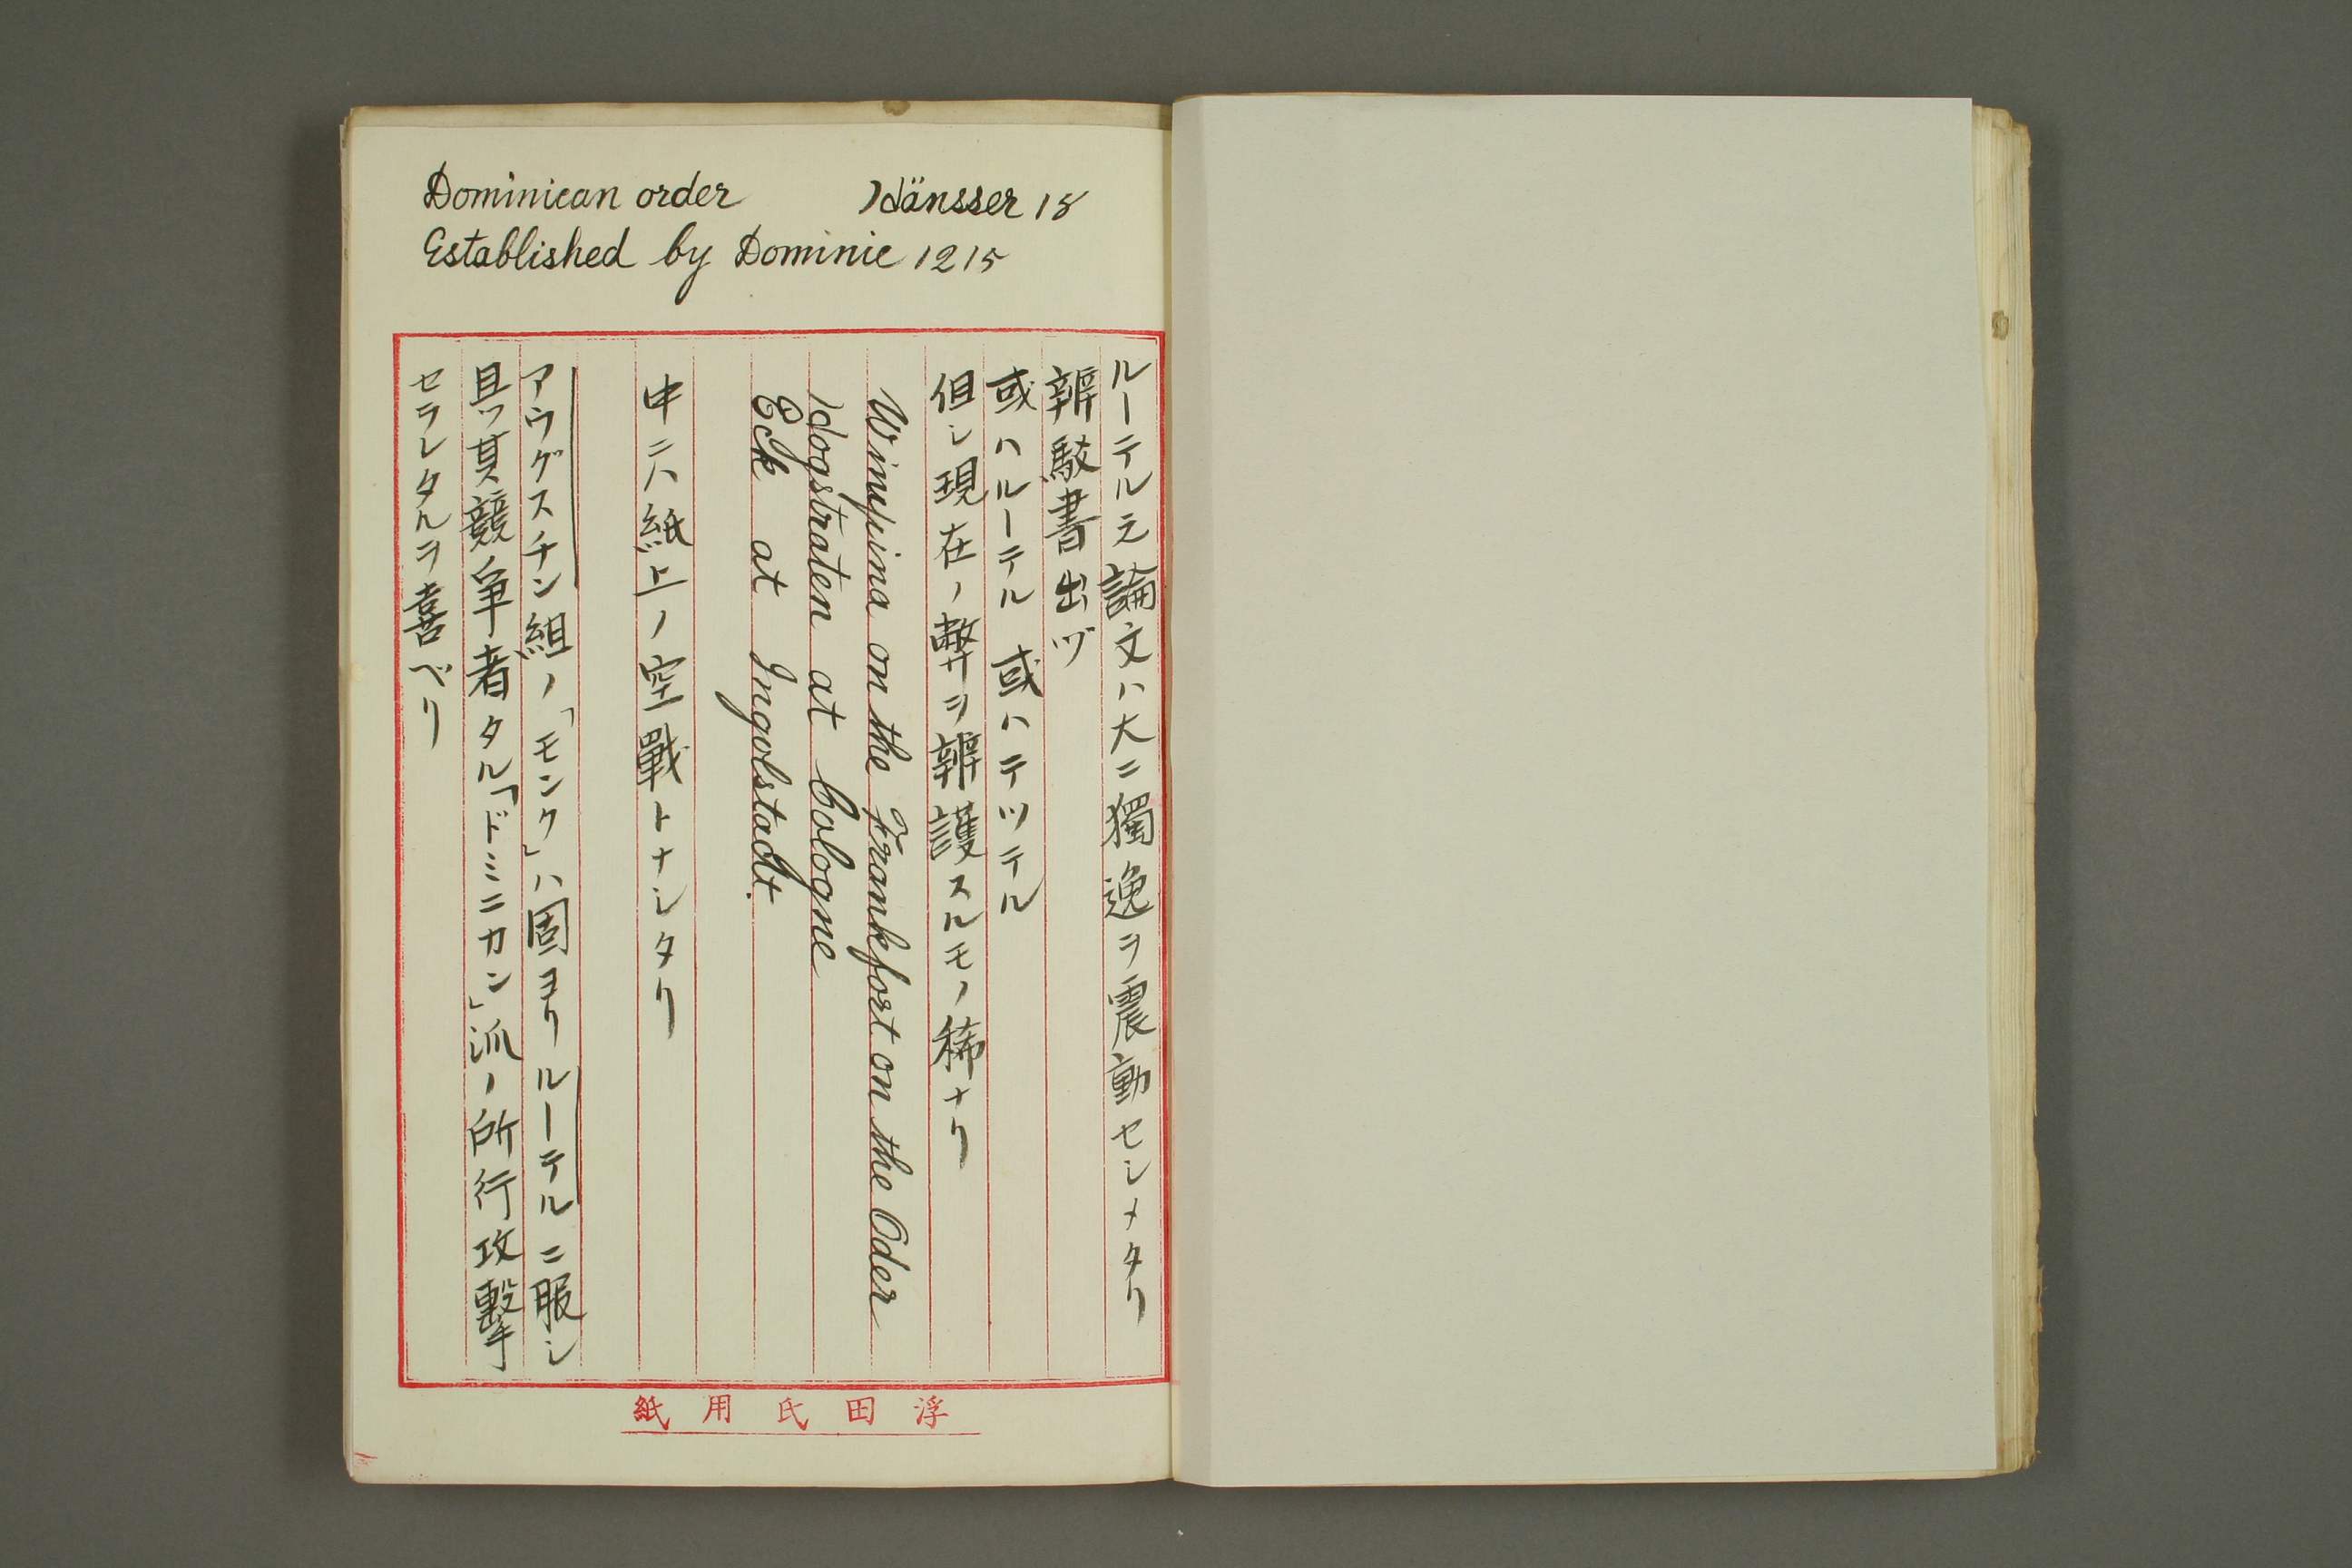 Dominican order Häusser 18
Established by Dominic 1215
ルーテル之論文ハ大ニ獨逸ヲ震動セシメタリ
辨駁書出ヅ
或ハルーテル 或ハテツテル
但シ現在ノ弊ヲ辨護スルモノ稀ナリ
Wimpina on the Frankfort on the Oder
Hogstraten at Cologne
Eck at Ingolstadt.
中ニハ紙上ノ空戰トナシタリ
アウグスチン組ノ「モンク」ハ固ヨリルーテルニ服シ
且ツ其競争者タル「ドミニカン」派ノ所行攻擊
セラレタルヲ喜ベリ
浮田氏用紙